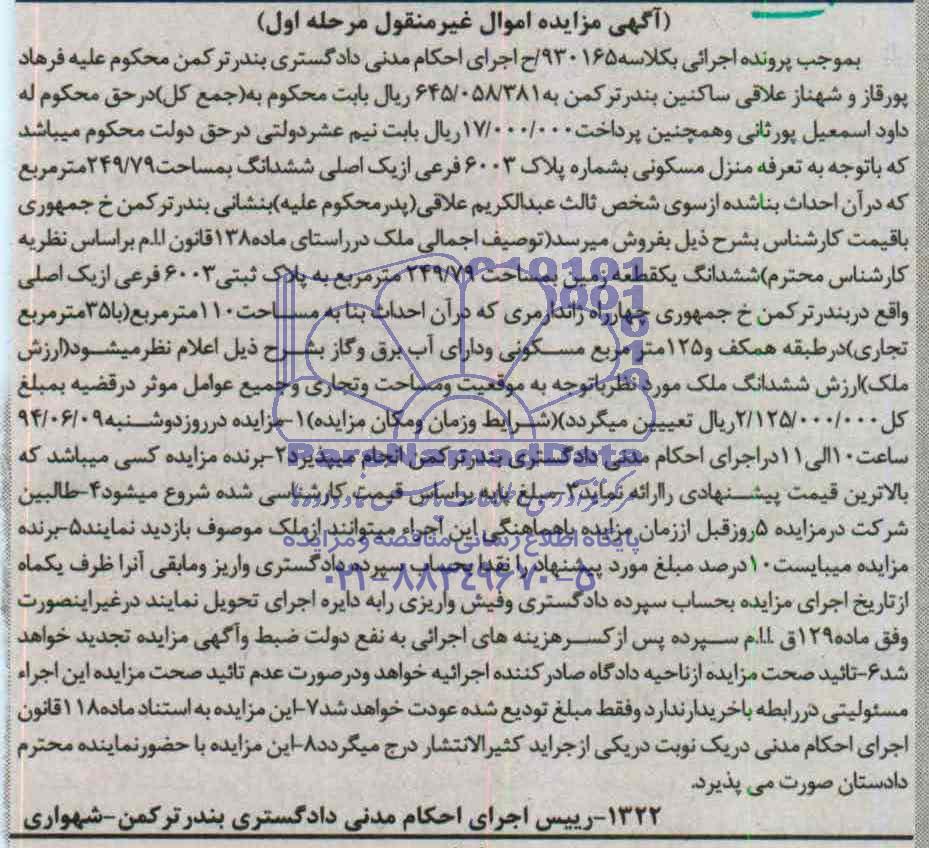 (آگهی مزایده اموال غیرمنقول مرحله اول)
بموجب پرونده اجرائی بکلاسه۹۳۰۱۶۵/ح اجرای احکام مدنی دادگستری بندرترکمن محکوم علیه فرهاد
پورقاز و شهناز علاقی ساکنین بندرترکمن به۶۴۵/۰۵۸/۳۸۱ ریال بابت محکوم به(جمع کل)درحق محکوم له
داود اسمعیل پورثانی وهمچنین پرداخت۱۷/۰۰۰/۰۰۰ریال بابت نیم عشردولتی درحق دولت محکوم میباشد
که باتوجه به تعرفه منزل مسکونی بشماره پلاک ۶۰۰۳ فرعی ازیک اصلی ششدانگ بمساحت۲۴۹/۷۹مترمربع
که درآن احداث بناشده ازسوی شخص ثالث عبدالکریم علاقی(پدرمحکوم علیه)بنشانی بندرترکمن خ جمهوری
باقیمت کارشناس بشرح ذیل بفروش میرسد(توصیف اجمالی ملک درراستای ماده۱۳۸قانون ا.ا.م براساس نظریه
کارشناس محترم)ششدانگ یکقطعه زمین بمساحت ۲۴۹/۷۹ مترمربع به پلاک ثبتی۶۰۰۳ فرعی ازیک اصلی
واقع دربندرترکمن خ جمهوری چهارراه ژاندارمری که درآن احداث بنا به مساحت۱۱۰مترمربع(با۳۵مترمربع
تجاری)درطبقه همکف و۱۲۵متر مربع مسکونی ودارای آب برق وگاز بشرح ذیل اعلام نظرمیشود(ارزش
ملک)ارزش ششدانگ ملک مورد نظرباتوجه به موقعیت ومساحت وتجاری وجمیع عوامل موثر درقضیه بمبلغ
کل۲/۱۲۵/۰۰۰/۰۰۰ریال تعییین میگردد)(شرایط وزمان ومکان مزایده)۱-مزایده درروزدوشنبه۹۴/۰۶/۰۹
ساعت۱۰الی۱۱دراجرای احکام مدنی دادگستری بندرترکمن انجام میپذیرد۲-برنده مزایده کسی میباشد که
بالاترین قیمت پیشنهادی راارائه نماید۳-مبلغ پایه براساس قیمت کارشناسی شده شروع میشود۴-طالبین
شرکت درمزایده ۵روزقبل اززمان مزایده باهماهنگی این اجراء میتوانند ازملک موصوف بازدید نمایند۵-برنده
مزایده میبایست۱۰درصد مبلغ مورد پیشنهاد را نقدا بحساب سپرده دادگستری واریز ومابقی آنرا ظرف یکماه
ازتاریخ اجرای مزایده بحساب سپرده دادگستری وفیش واریزی رابه دایره اجرای تحویل نمایند درغیراینصورت
وفق ماده۱۲۹ق ا.ا.م سپرده پس ازکسرهزینه های اجرائی به نفع دولت ضبط وآگهی مزایده تجدید خواهد
شد۶-تائید صحت مزایده ازناحیه دادگاه صادرکننده اجرائیه خواهد ودرصورت عدم تائید صحت مزایده این اجراء
مسئولیتی دررابطه باخریدارندارد وفقط مبلغ تودیع شده عودت خواهد شد۷-این مزایده به استناد ماده۱۱۸قانون
اجرای احکام مدنی دریک نوبت دریکی ازجراید کثیرالانتشار درج میگردد۸-این مزایده با حضورنماینده محترم
دادستان صورت می پذیرد.
۱۳۲۲-رییس اجرای احکام مدنی دادگستری بندرترکمن-شهواری
ParsNamadData
پایگاه اطلاع رسانی مناقصه و مزایده
۰۲۱-۸۸۳۴۹۶۷۰-۵